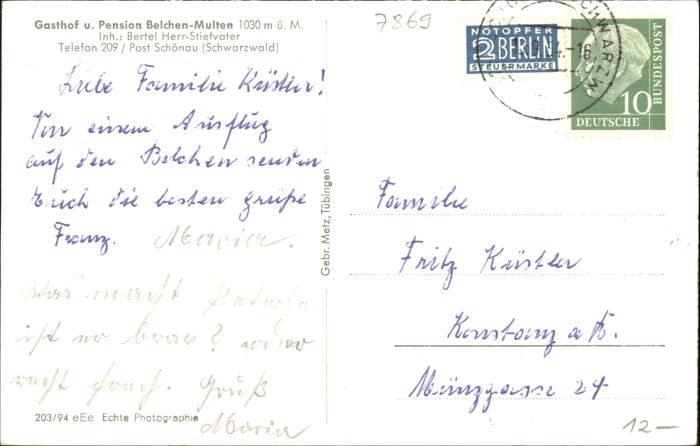 Gasthof u. Pension Belchen-Multen 1030 m ü. M.
Inh.: Bertel Herr-Stiefvater
Telefon 209 / Post Schönau (Schwarzwald)
7869
NOTOPFER
2 BERLIN
STEUERMARKE
SCHWARZW
-16
10
DEUTSCHE
BUNDESPOST
Liebe Familie Küstler!
Von einem Ausflug
auf den Belchen senden
Euch die besten grüße
Franz. Maria.
Was macht Peterle
ist er brav? oder
recht frech. Gruß
Maria
203/94 eEe Echte Photographie
Gebr. Metz, Tübingen
Familie
Fritz Küstler
Konstanz a/B.
Münzgasse 24
12—